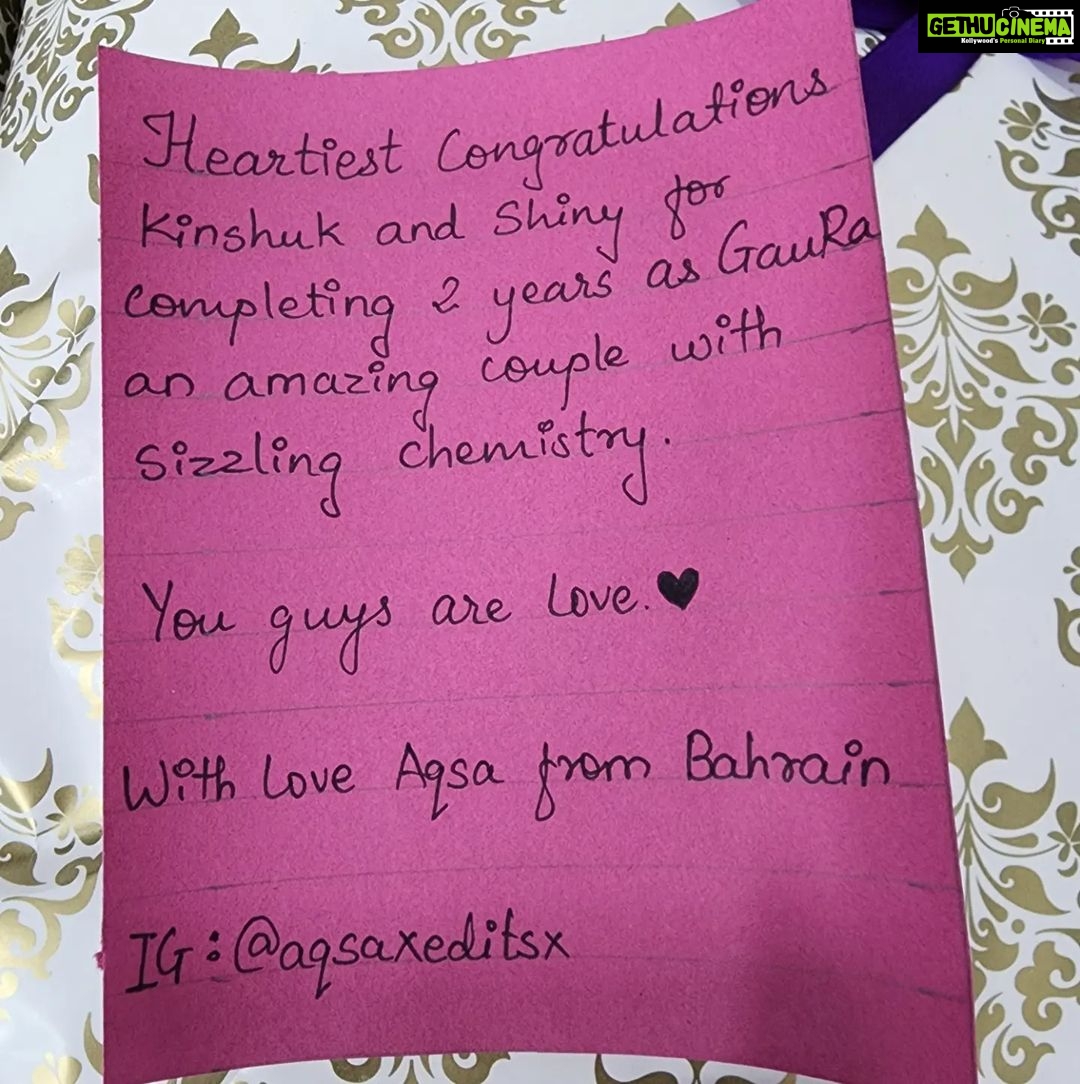 GETHUCINEMA
Kollywood's Personal Diary
Heartiest Congratulations
Kinshuk and Shiny for
completing 2 years as GauRa
an amazing couple with
sizzling chemistry.
You guys are love.♥
With love Aqsa from Bahrain
IG:@aqsaxeditsx